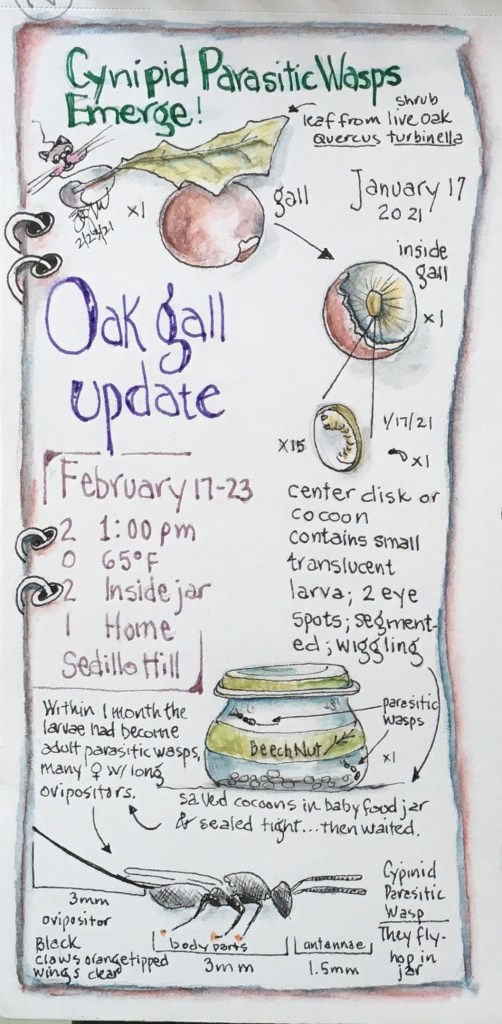 Cynipid Parasitic Wasps
Emerge!
shrub
leaf from live oak
Quercus turbinella
2/24/21
x1
gall
January 17
2021
inside
gall
x1
Oak gall
update
x15
1/17/21
x1
February 17-23
2 1:00 pm
0 65°F
2 Inside jar
1 Home
Sedillo Hill
center disk or
cocoon
contains small
translucent
larva; 2 eye
spots; segment-
ed; wiggling
Within 1 month the
larvae had become
adult parasitic wasps,
many ♀ w/ long
ovipositors.
parasitic
wasps
BeechNut
x1
saved cocoons in baby food jar
& sealed tight...then waited.
3mm
ovipositor
Black
claws orange tipped
wings clear
body parts
3mm
antannae
1.5mm
Cypinid
Parasitic
Wasp
They fly-
hop in
jar